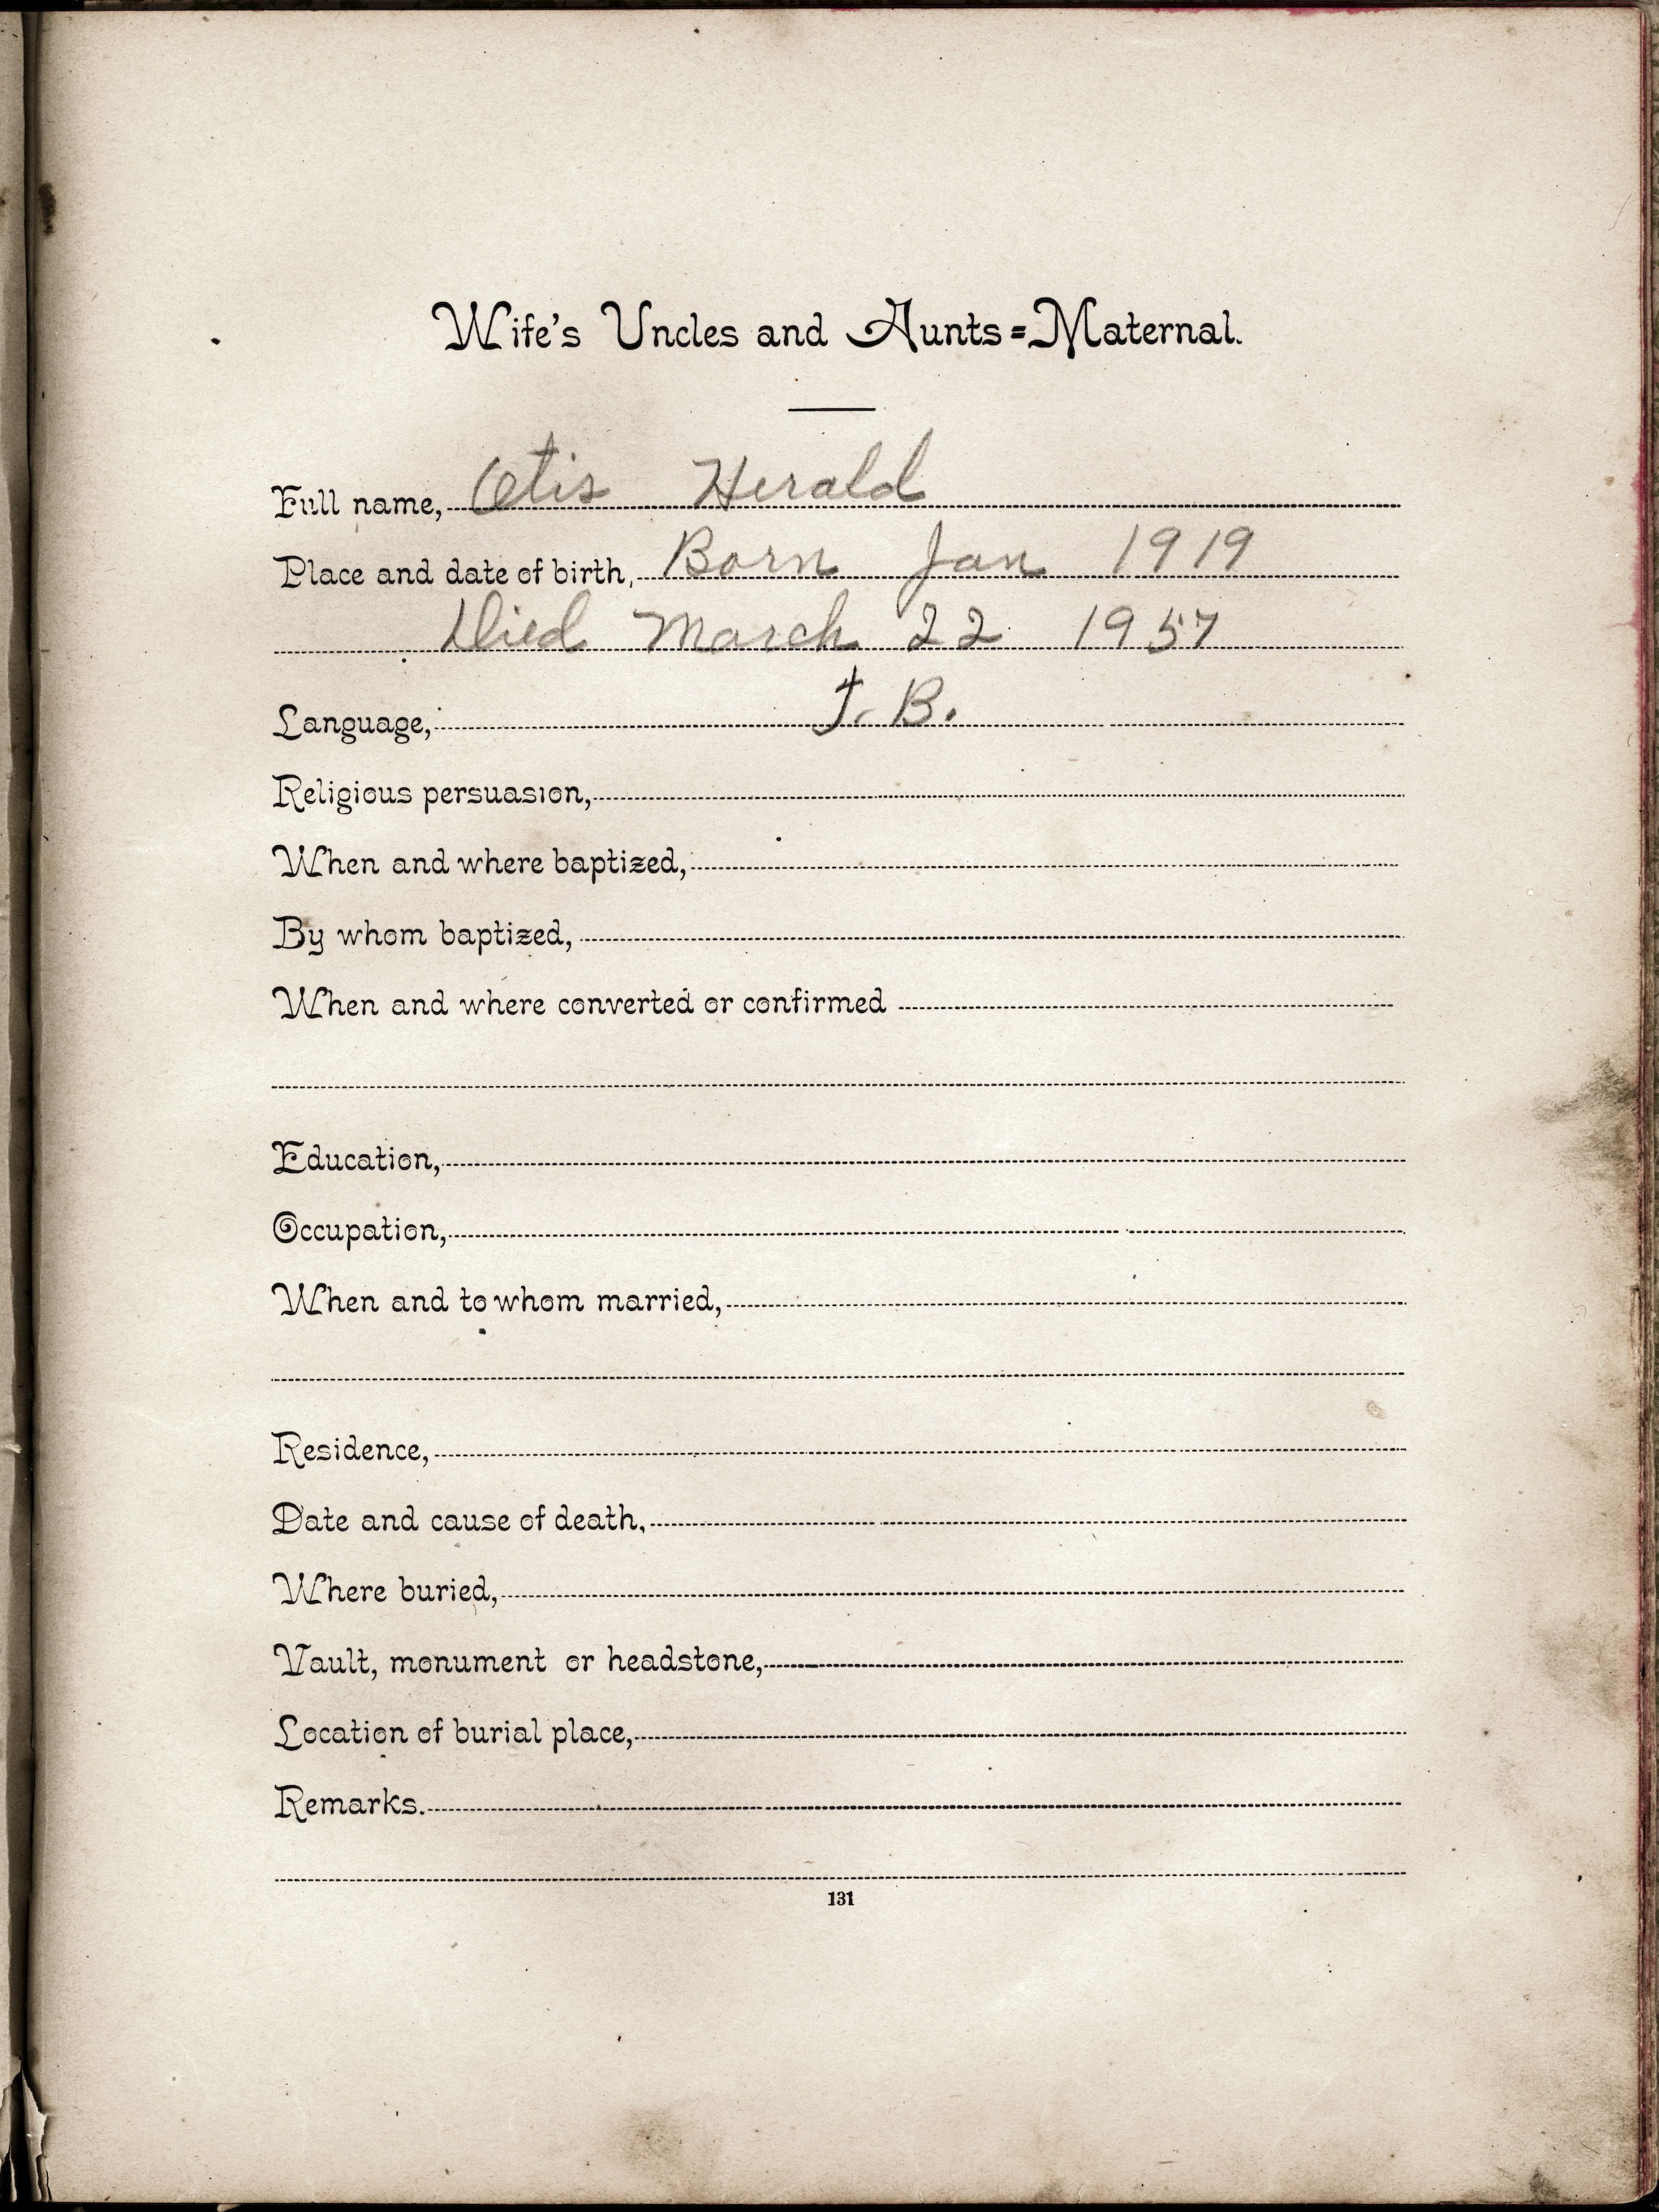 Wife's Uncles and Aunts=Maternal.
Full name, Otis Herald
Place and date of birth, Born Jan 1919
Died March 22 1957
Language, T. B.
Religious persuasion,
When and where baptized,
By whom baptized,
When and where converted or confirmed
Education,
Occupation,
When and to whom married,
Residence,
Date and cause of death,
Where buried,
Vault, monument or headstone,
Location of burial place,
Remarks.
131